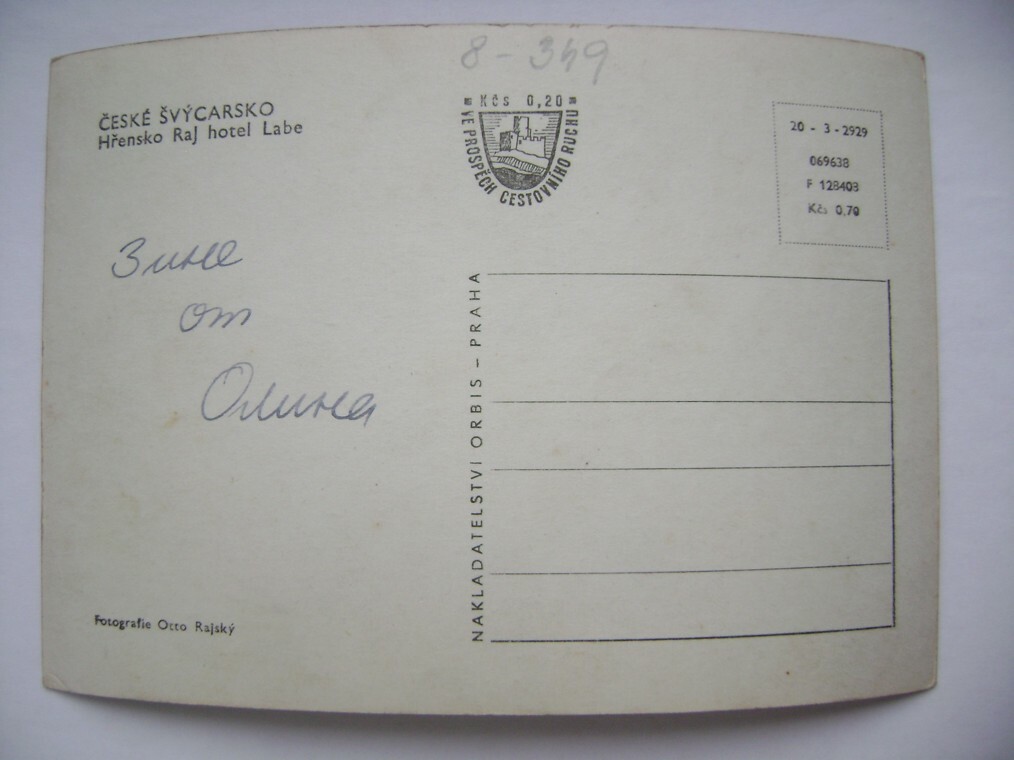 8 - 349
ČESKÉ ŠVÝCARSKO
Hřensko Raj hotel Labe
Kčs 0,20
VE PROSPĚCH CESTOVNÍHO RUCHU
20 - 3 - 2929
069638
F 128403
Kčs 0,70
Зине
от
Олина
NAKLADATELSTVI ORBIS – PRAHA
Fotografie Otto Rajský